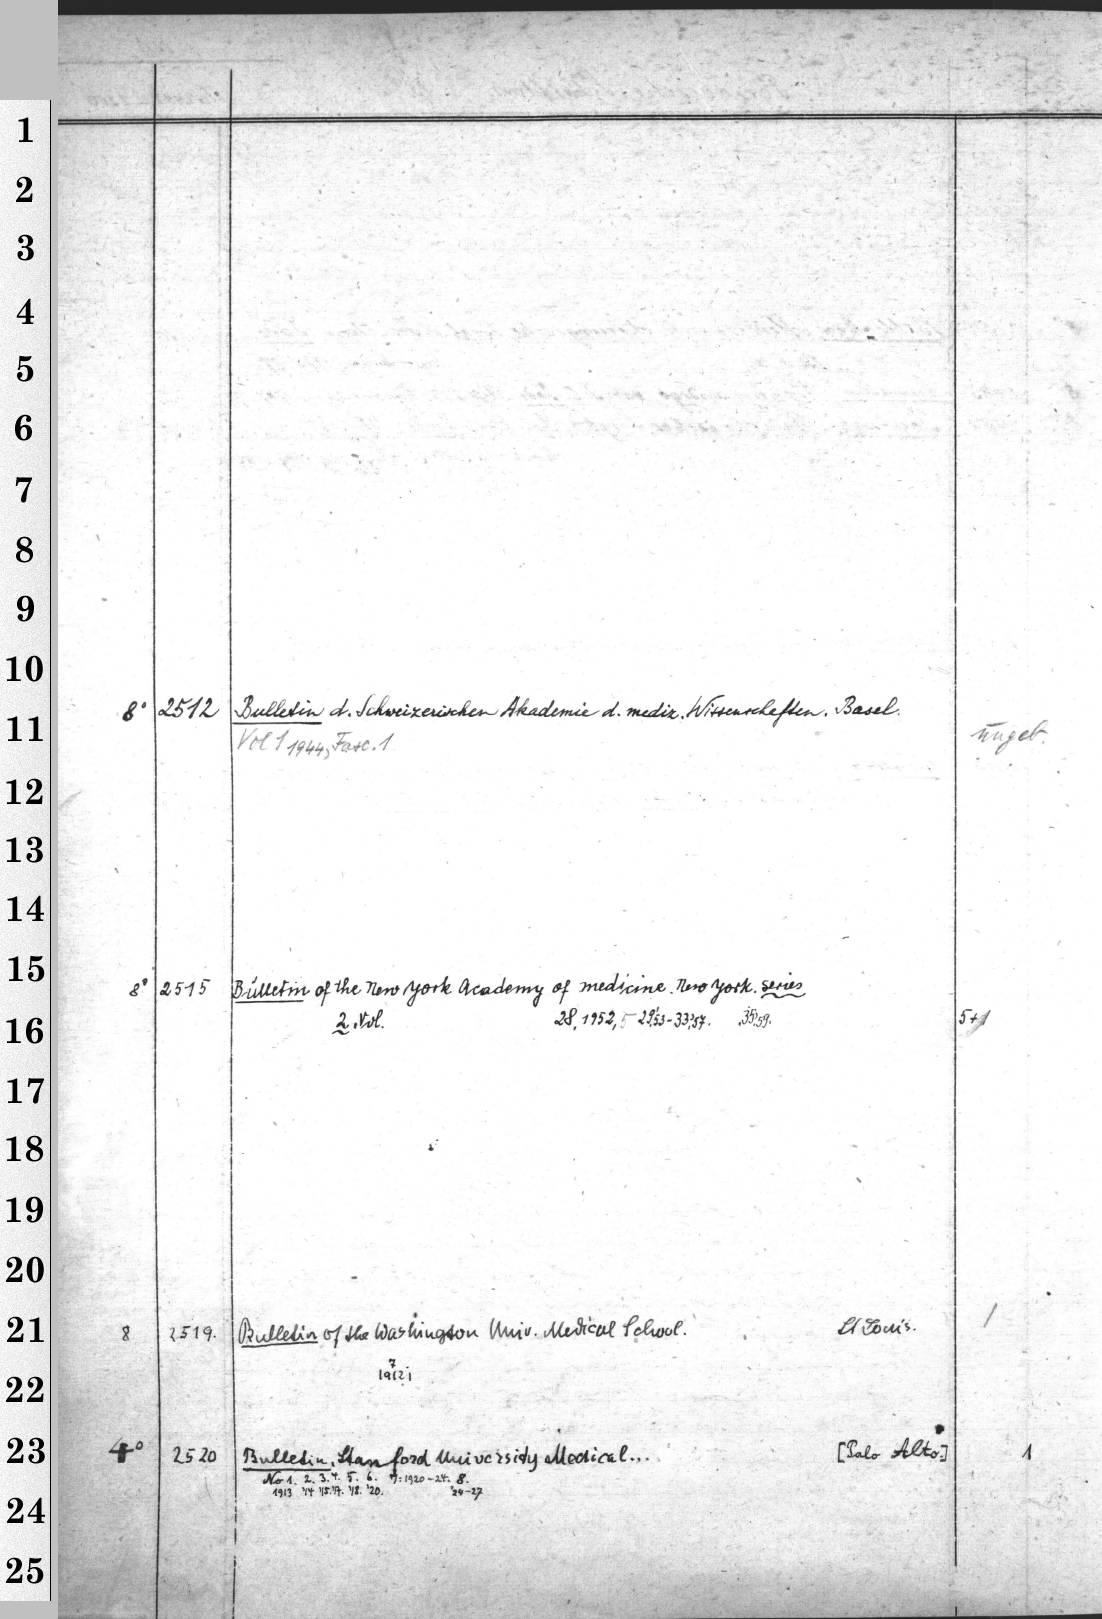 1
2
3
4
5
6
7
8
9
10
8° 2512 Bulletin d. Schweizerischen Akademie d. mediz. Wissenschaften. Basel.
11
Vol 1 1944, Fasc. 1 ungeb.
12
13
14
15
8° 2515 Bulletin of the New York Academy of medicine. New York. series
16
2. Vol. 28, 1952, 29,53-33,57. 35,59. 5+1
17
18
19
20
21
8 2519. Bulletin of the Washington Univ. Medical School. St Louis. 1
7
22
1912
23
4° 2520 Bulletin, Stanford University Medical... [Palo Alto.] 1
No 1. 2. 3. 4. 5. 6. 7: 1920-24. 8.
1913 '14 '15. '17. '18. '20. '24-27
24
25